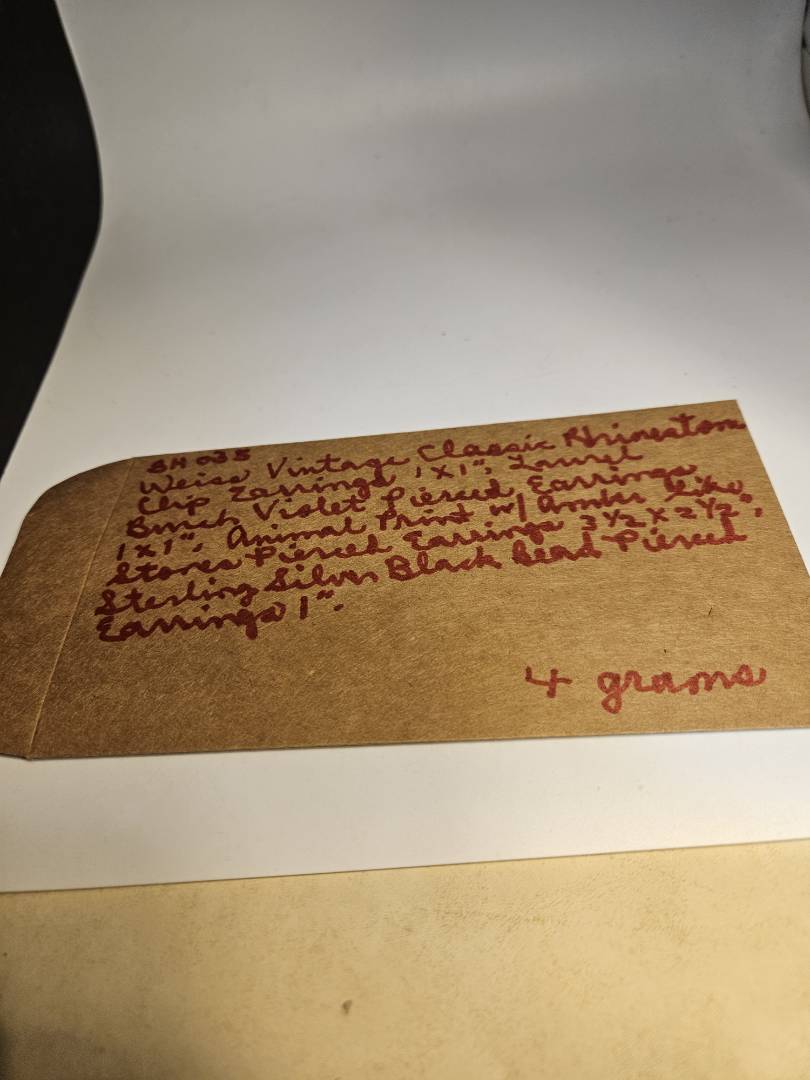 SH 035
Weiss Vintage Classic Rhinestone
Clip Earrings 1 x 1", Laurel
Burch Violet Pierced Earrings
1 x 1", Animal Print w/ Amber like
Stones Pierced Earrings 3 1/2 x 2 1/2",
Sterling Silver Black Bead Pierced
Earrings 1".
4 grams